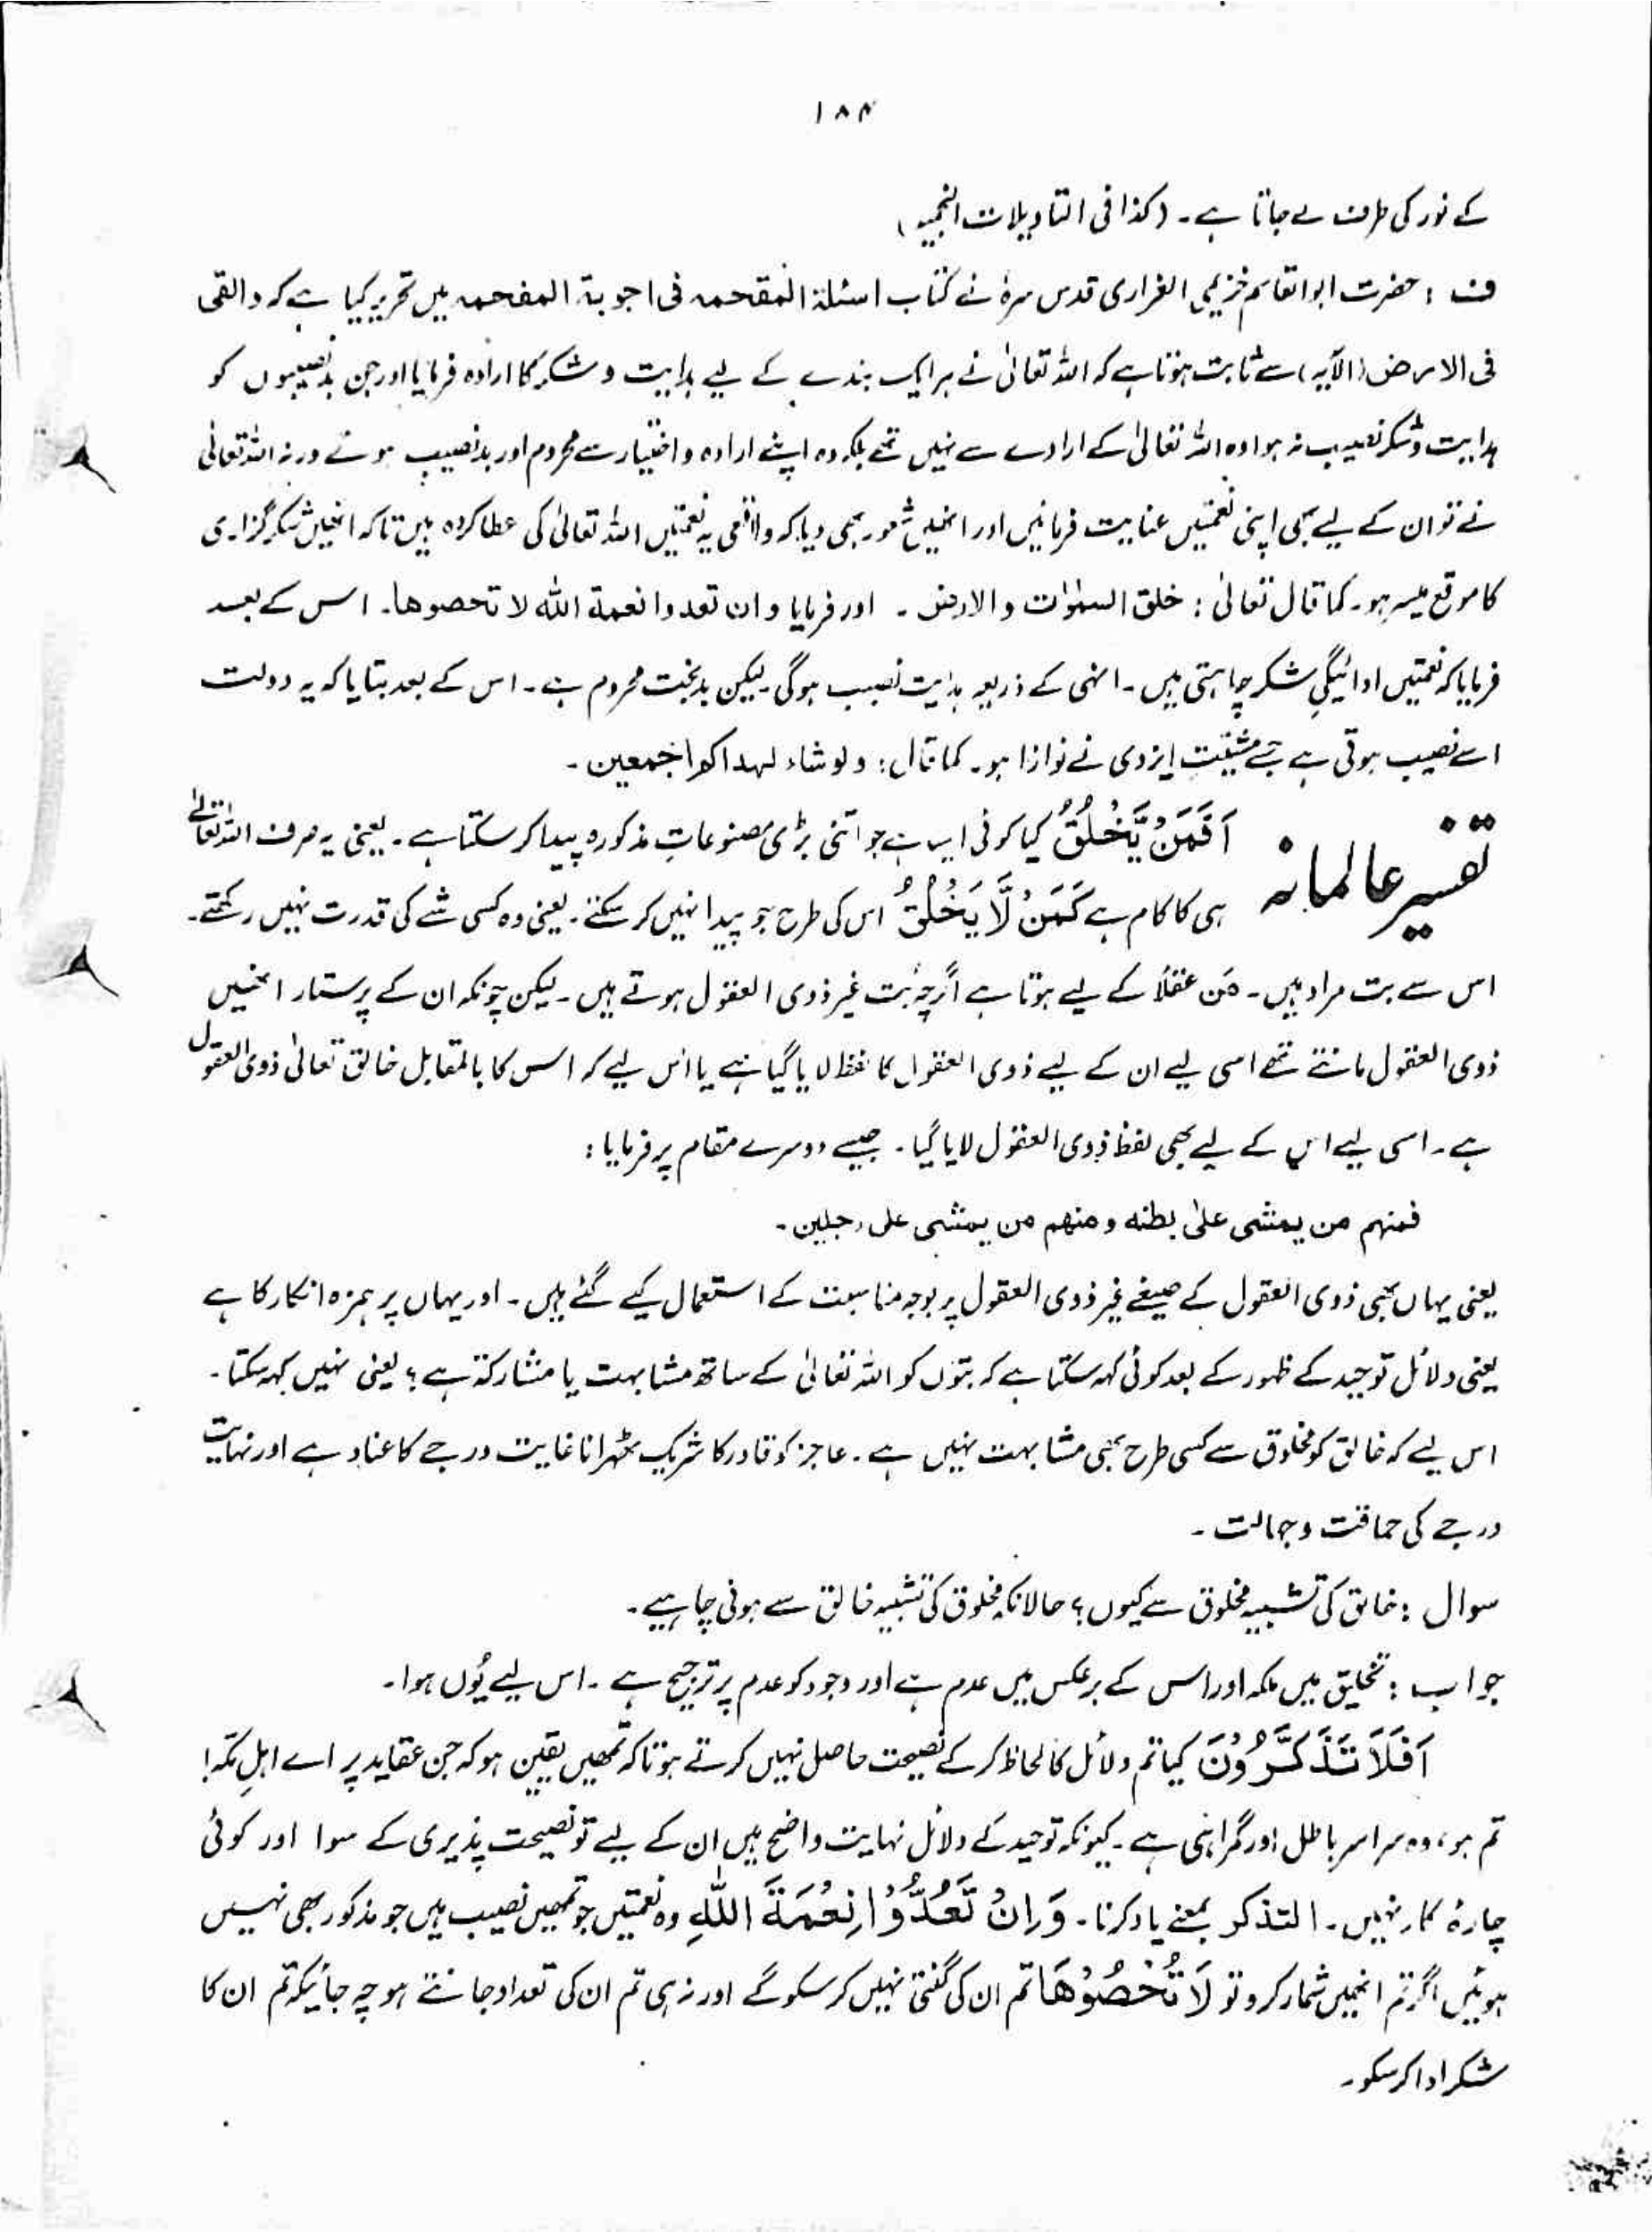 ۱۸۴
کے نور کی طرف لے جاتا ہے۔ (کذا فی التاویلات النجمیہ)
ف : حضرت ابو القاسم خزیمی الفراری قدس سرہٗ نے کتاب اسئلۃ المقحمہ فی اجوبۃ المفحمہ میں تحریر کیا ہے کہ والقی
فی الارض (الآیہ) سے ثابت ہوتا ہے کہ اللہ تعالیٰ نے ہر ایک بندے کے لیے ہدایت و شکر کا ارادہ فرمایا اور جن بدنصیبوں کو
ہدایت و شکر نصیب نہ ہوا وہ اللہ تعالیٰ کے ارادے سے نہیں تھے بلکہ وہ اپنے ارادہ و اختیار سے محروم اور بدنصیب ہوئے ورنہ اللہ تعالیٰ
نے تو ان کے لیے بھی اپنی نعمتیں عنایت فرمائیں اور انھیں شعور بھی دیا کہ واقعی یہ نعمتیں اللہ تعالیٰ کی عطا کردہ ہیں تاکہ انھیں شکر گزاری
کا موقع میسر ہو۔ کما قال تعالیٰ : خلق السمٰوٰت والارض ۔ اور فرمایا وان تعدوا نعمة الله لا تحصوها۔ اس کے بعد
فرمایا کہ نعمتیں ادائیگیِ شکر چاہتی ہیں۔ انہی کے ذریعہ ہدایت نصیب ہوگی۔ لیکن بدبخت محروم ہے۔ اس کے بعد بتایا کہ یہ دولت
اسے نصیب ہوتی ہے جسے مشیّتِ ایزدی نے نوازا ہو۔ کما قال : ولو شاء لہداکم اجمعین ۔
تفسیر عالمانہ
اَفَمَنْ يَّخْلُقُ کیا کوئی ایسا ہے جو اتنی بڑی مصنوعاتِ مذکورہ پیدا کر سکتا ہے۔ یعنی یہ صرف اللہ تعالےٰ
ہی کا کام ہے كَمَنْ لَّا يَخْلُقُ اس کی طرح جو پیدا نہیں کر سکتے۔ یعنی وہ کسی شے کی قدرت نہیں رکھتے۔
اس سے بت مراد ہیں۔ مَن عقلاً کے لیے ہوتا ہے اگرچہ بت غیر ذوی العقول ہوتے ہیں۔ لیکن چونکہ ان کے پرستار انھیں
ذوی العقول مانتے تھے اسی لیے ان کے لیے ذوی العقول کا لفظ لایا گیا ہے یا اس لیے کہ اس کا بالمقابل خالق تعالیٰ ذوی العقول
ہے۔ اسی لیے اس کے لیے بھی لفظ ذوی العقول لایا گیا۔ جیسے دوسرے مقام پر فرمایا :
فمنہم من یمشی علیٰ بطنہ ومنھم من یمشی علی رجلین ۔
یعنی یہاں بھی ذوی العقول کے صیغے غیر ذوی العقول پر بوجہ مناسبت کے استعمال کیے گئے ہیں۔ اور یہاں پر ہمزہ انکار کا ہے
یعنی دلائل توحید کے ظہور کے بعد کوئی کہہ سکتا ہے کہ بتوں کو اللہ تعالیٰ کے ساتھ مشابہت یا مشارکۃ ہے ؟ یعنی نہیں کہہ سکتا۔
اس لیے کہ خالق کو مخلوق سے کسی طرح بھی مشابہت نہیں ہے۔ عاجز کو قادر کا شریک ٹھہرانا غایت درجے کا عناد ہے اور نہایت
درجے کی حماقت و جہالت ۔
سوال : خالق کی تشبیہ مخلوق سے کیوں ؟ حالانکہ مخلوق کی تشبیہ خالق سے ہونی چاہیے۔
جواب : تخلیق میں ملکہ اور اس کے برعکس میں عدم ہے اور وجود کو عدم پر ترجیح ہے ۔ اس لیے یُوں ہوا۔
اَفَلَا تَذَكَّرُوْنَ کیا تم دلائل کا لحاظ کر کے نصیحت حاصل نہیں کرتے ہو تاکہ تمھیں یقین ہو کہ جن عقاید پر اے اہلِ مکّہ !
تم ہو، وہ سراسر باطل اور گمراہی ہے۔ کیونکہ توحید کے دلائل نہایت واضح ہیں ان کے لیے تو نصیحت پذیری کے سوا اور کوئی
چارۂ کار نہیں۔ التذکر بمعنے یاد کرنا۔ وَاِنْ تَعُدُّوْا نِعْمَةَ اللّٰهِ وہ نعمتیں جو تمھیں نصیب ہیں جو مذکور بھی نہیں
ہوئیں اگر تم انھیں شمار کرو تو لَا تُحْصُوْهَا تم ان کی گنتی نہیں کر سکو گے اور نہ ہی تم ان کی تعداد جانتے ہو چہ جائیکہ تم ان کا
شکر ادا کر سکو۔